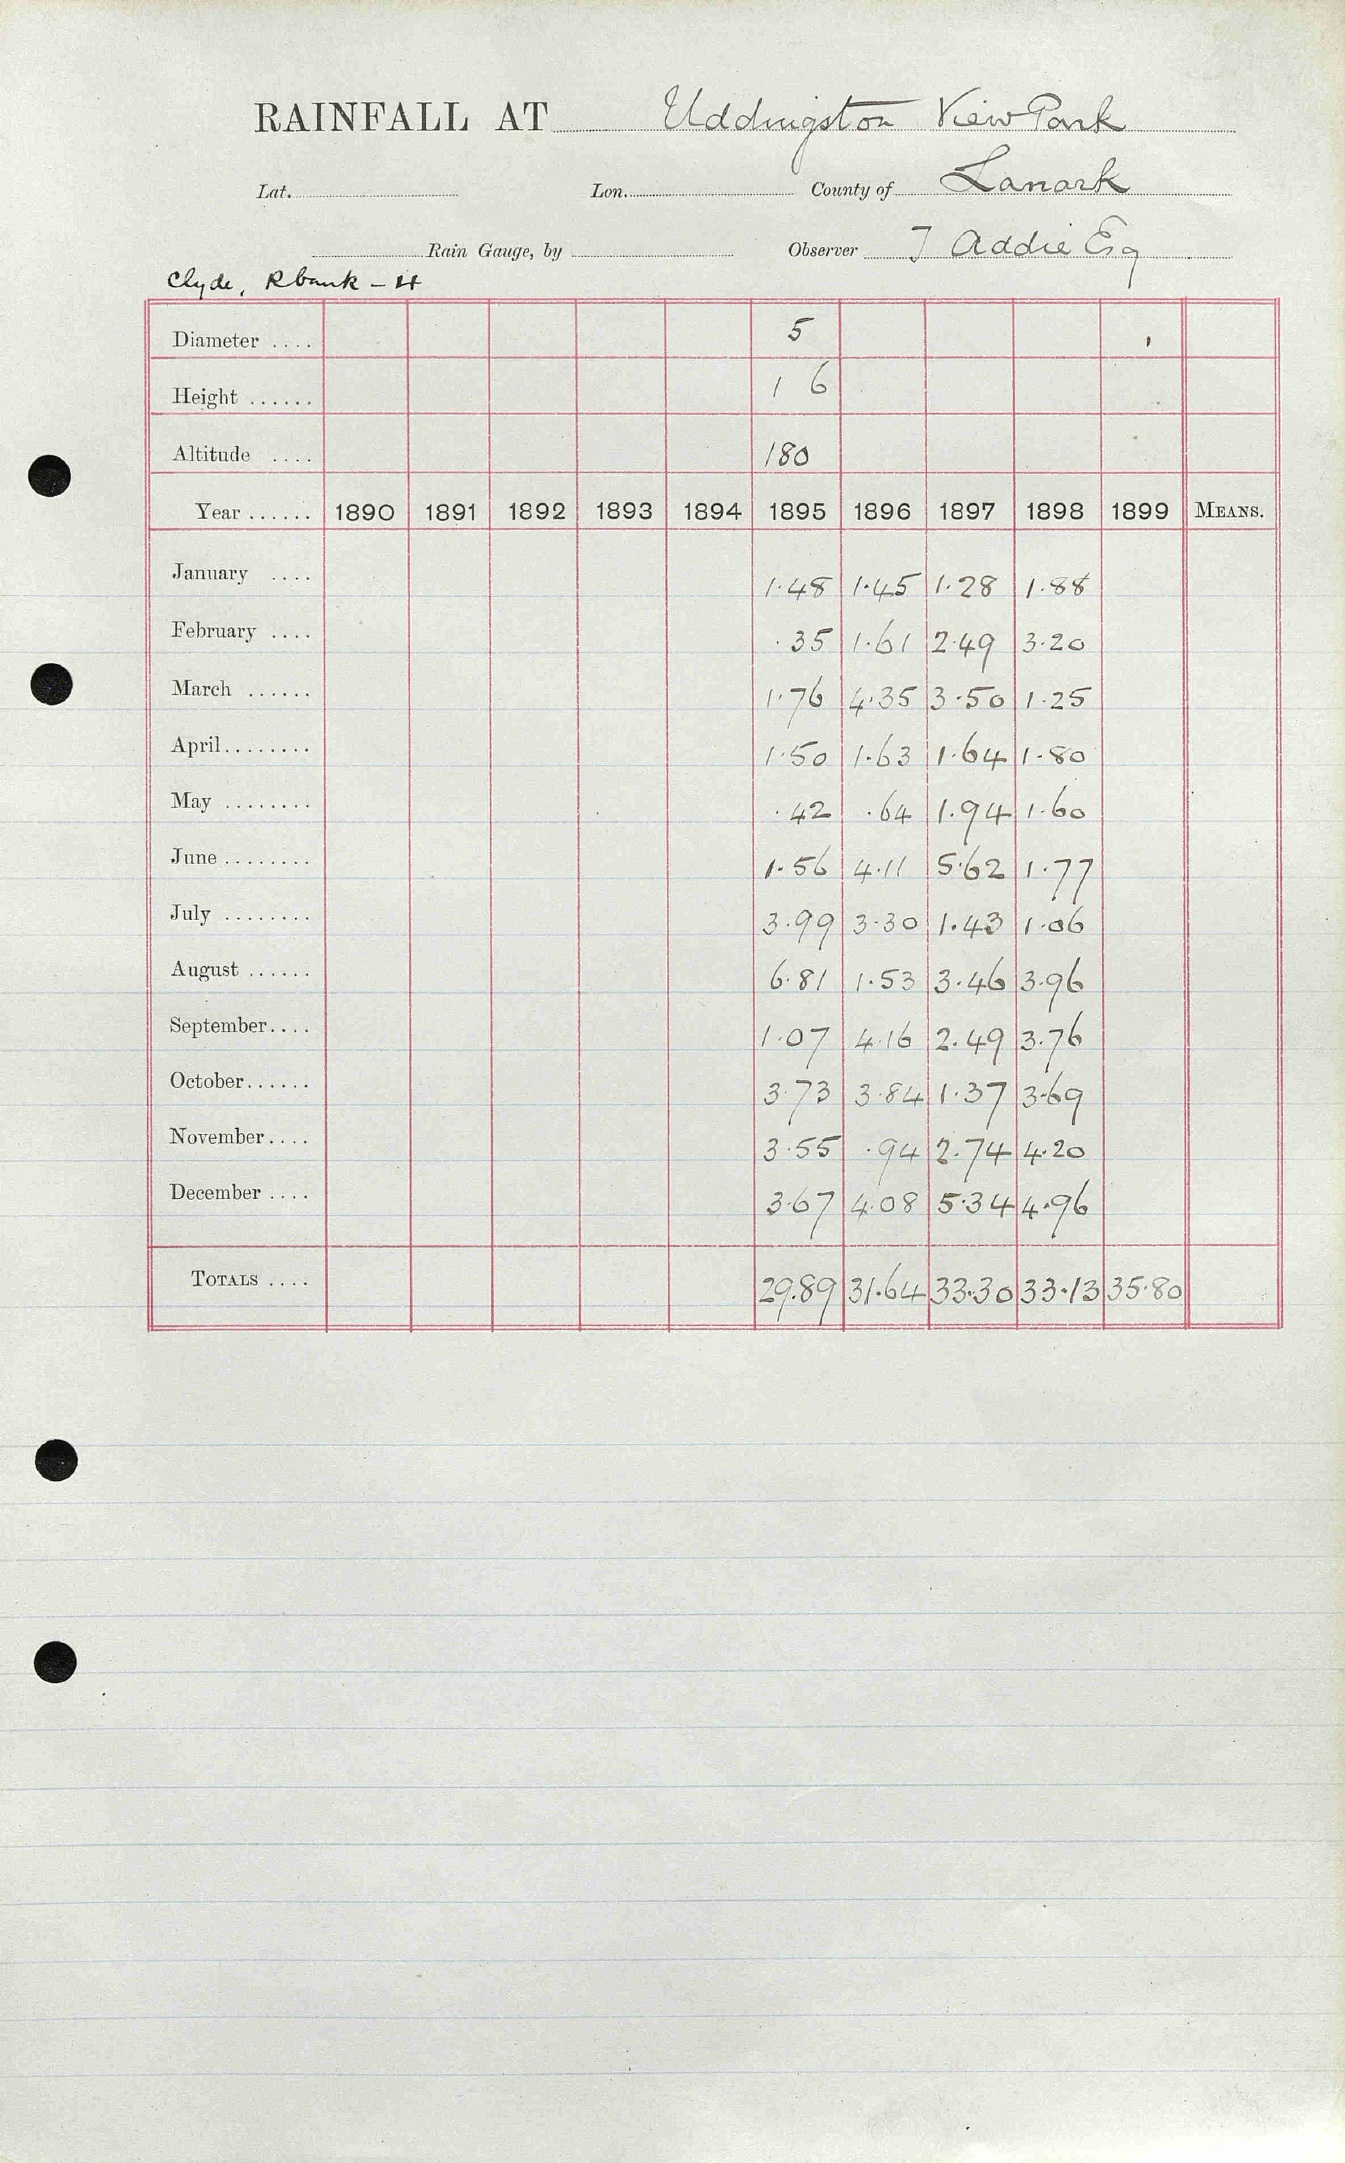 RAINFALL AT Uddingston View Park
Lat. Lon. County of Lanark
Rain Gauge, by Observer J Addie Esq
Clyde, R bank - 4
Diameter .... 5
Height ...... 1 6
Altitude .... 180
Year ...... 1890 1891 1892 1893 1894 1895 1896 1897 1898 1899 MEANS.
January .... 1.48 1.45 1.28 1.88
February .... .35 1.61 2.49 3.20
March ...... 1.76 4.35 3.50 1.25
April........ 1.50 1.63 1.64 1.80
May ........ .42 .64 1.94 1.60
June ........ 1.56 4.11 5.62 1.77
July ........ 3.99 3.30 1.43 1.06
August ...... 6.81 1.53 3.46 3.96
September.... 1.07 4.16 2.49 3.76
October...... 3.73 3.84 1.37 3.69
November.... 3.55 .94 2.74 4.20
December .... 3.67 4.08 5.34 4.96
TOTALS .... 29.89 31.64 33.30 33.13 35.80